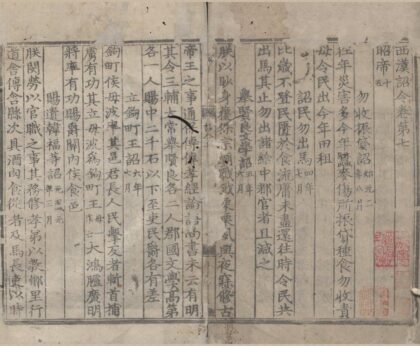 西漢詔令卷第七
昭帝
勿收振貸詔
往年災害多今年蠶麥傷所振貸種食勿收責
毋令民出今年田租
詔民勿出馬 四年七月
比歲不登民匱於食流庸未盡還往時令民共
出馬其止勿出諸給中都官者且減之
舉賢良文學詔
朕以眇身獲保宗廟戰戰栗栗夙興夜寐修古
帝王之事通保傅傳孝經論語尚書未云有明
其令三輔太常舉賢良各二人郡國文學高第
各一人賜中二千石以下至吏民爵各有差
立鉤町王詔 六年七月
鉤町侯毋波率其邑君長人民擊反者斬首捕
虜有功其立毋波為鉤町王大鴻臚廣明
將率有功賜爵關內侯食邑
賜遣韓福等詔
朕閔勞以官職之事其務修孝弟以教鄉里行
道舍傳舍縣次具酒肉食從者及馬長吏以時